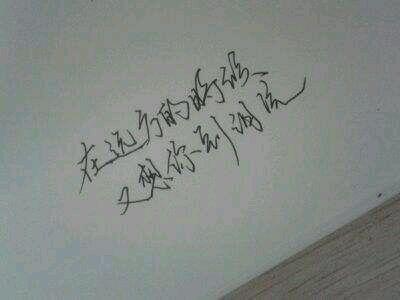 在远方的时候
又想你到泪流